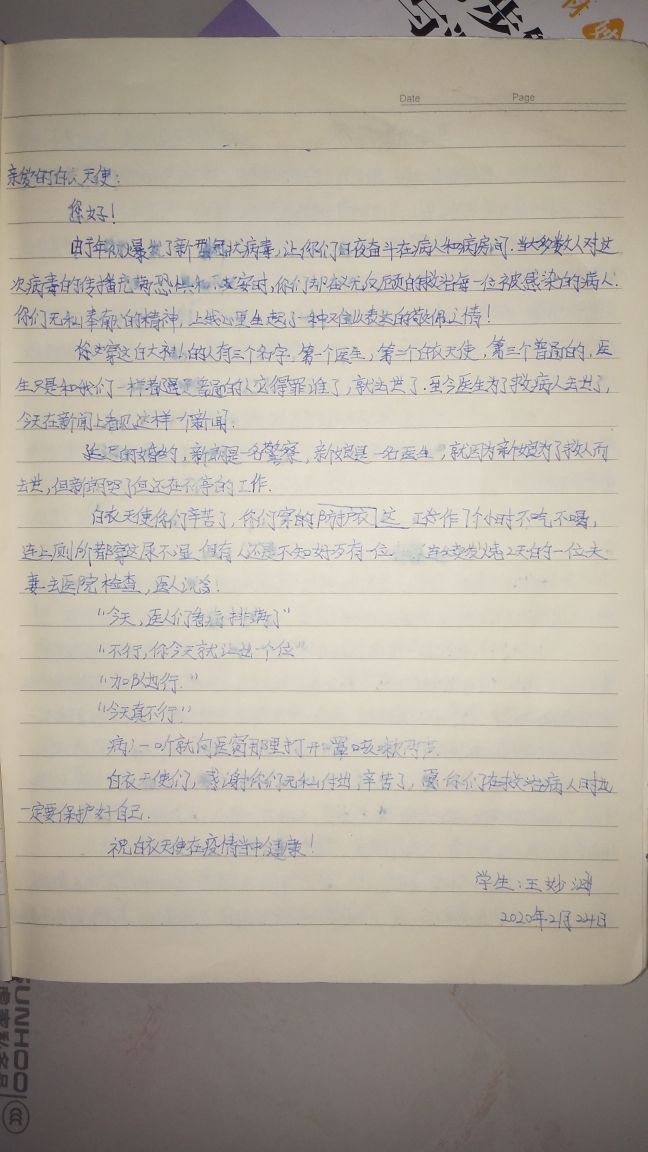 Date Page
亲爱的白衣天使:
您好!
由于年初爆发了新型冠状病毒,让你们日夜奋斗在病人和病房间.当大多数人对这
次病毒的传播充满恐惧和不安时,你们却在义无反顾的救治每一位被感染的病人.
你们无私奉献的精神,让我心里生起了一种难以表达的敬佩之情!
你穿这白大褂的人有三个名字.第一个医生,第二个白衣天使,第三个普通的,医
生只是和我们一样普通的人它得罪谁了,就去世了.至今医生为了救病人去世了,
今天在新闻上看见这样一个新闻:
延迟的婚约,新郎是一名警察,新娘是一名医生,就因为新娘为了救人而
去世,但新郎哭了但还在不停的工作.
白衣天使你们辛苦了,你们穿的防护衣 这 工作了个小时不吃不喝,
连上厕所都穿这尿不湿 但有人还是不知好歹有一位 发烧2天的一位夫
妻去医院检查,医人说:
“今天,医人们看病排满了”
“不行,你今天就让出一个位”
“加队也行.”
“今天真不行”
病人一听就向医窗那里打开 罩咳嗽两声.
白衣天使们,感谢你们无私付出,辛苦了,愿你们在救治病人时也
一定要保护好自己.
祝白衣天使在疫情当中健康!
学生:王妙涵
2020年2月24日
SUNHOO